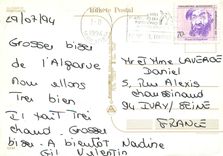 29/07/94
Bilhete Postal
Grosses bises
de l'Algarve
Nous allons
Tres bien
Il fait Tres
chaud. Grosses
bises - A bientôt Nadine
Gil Valentin
70$
Mr et Mme LAVERGE
Daniel
5, rue Alexis
chausseinaud
94 IVRY/SEINE
FRANCE